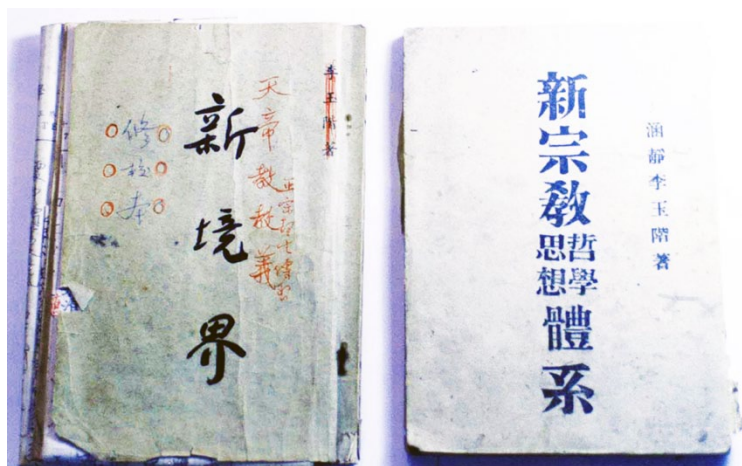 李玉階著
天帝教教義
新境界
修
校
本
涵靜李玉階著
新宗教哲學思想體系